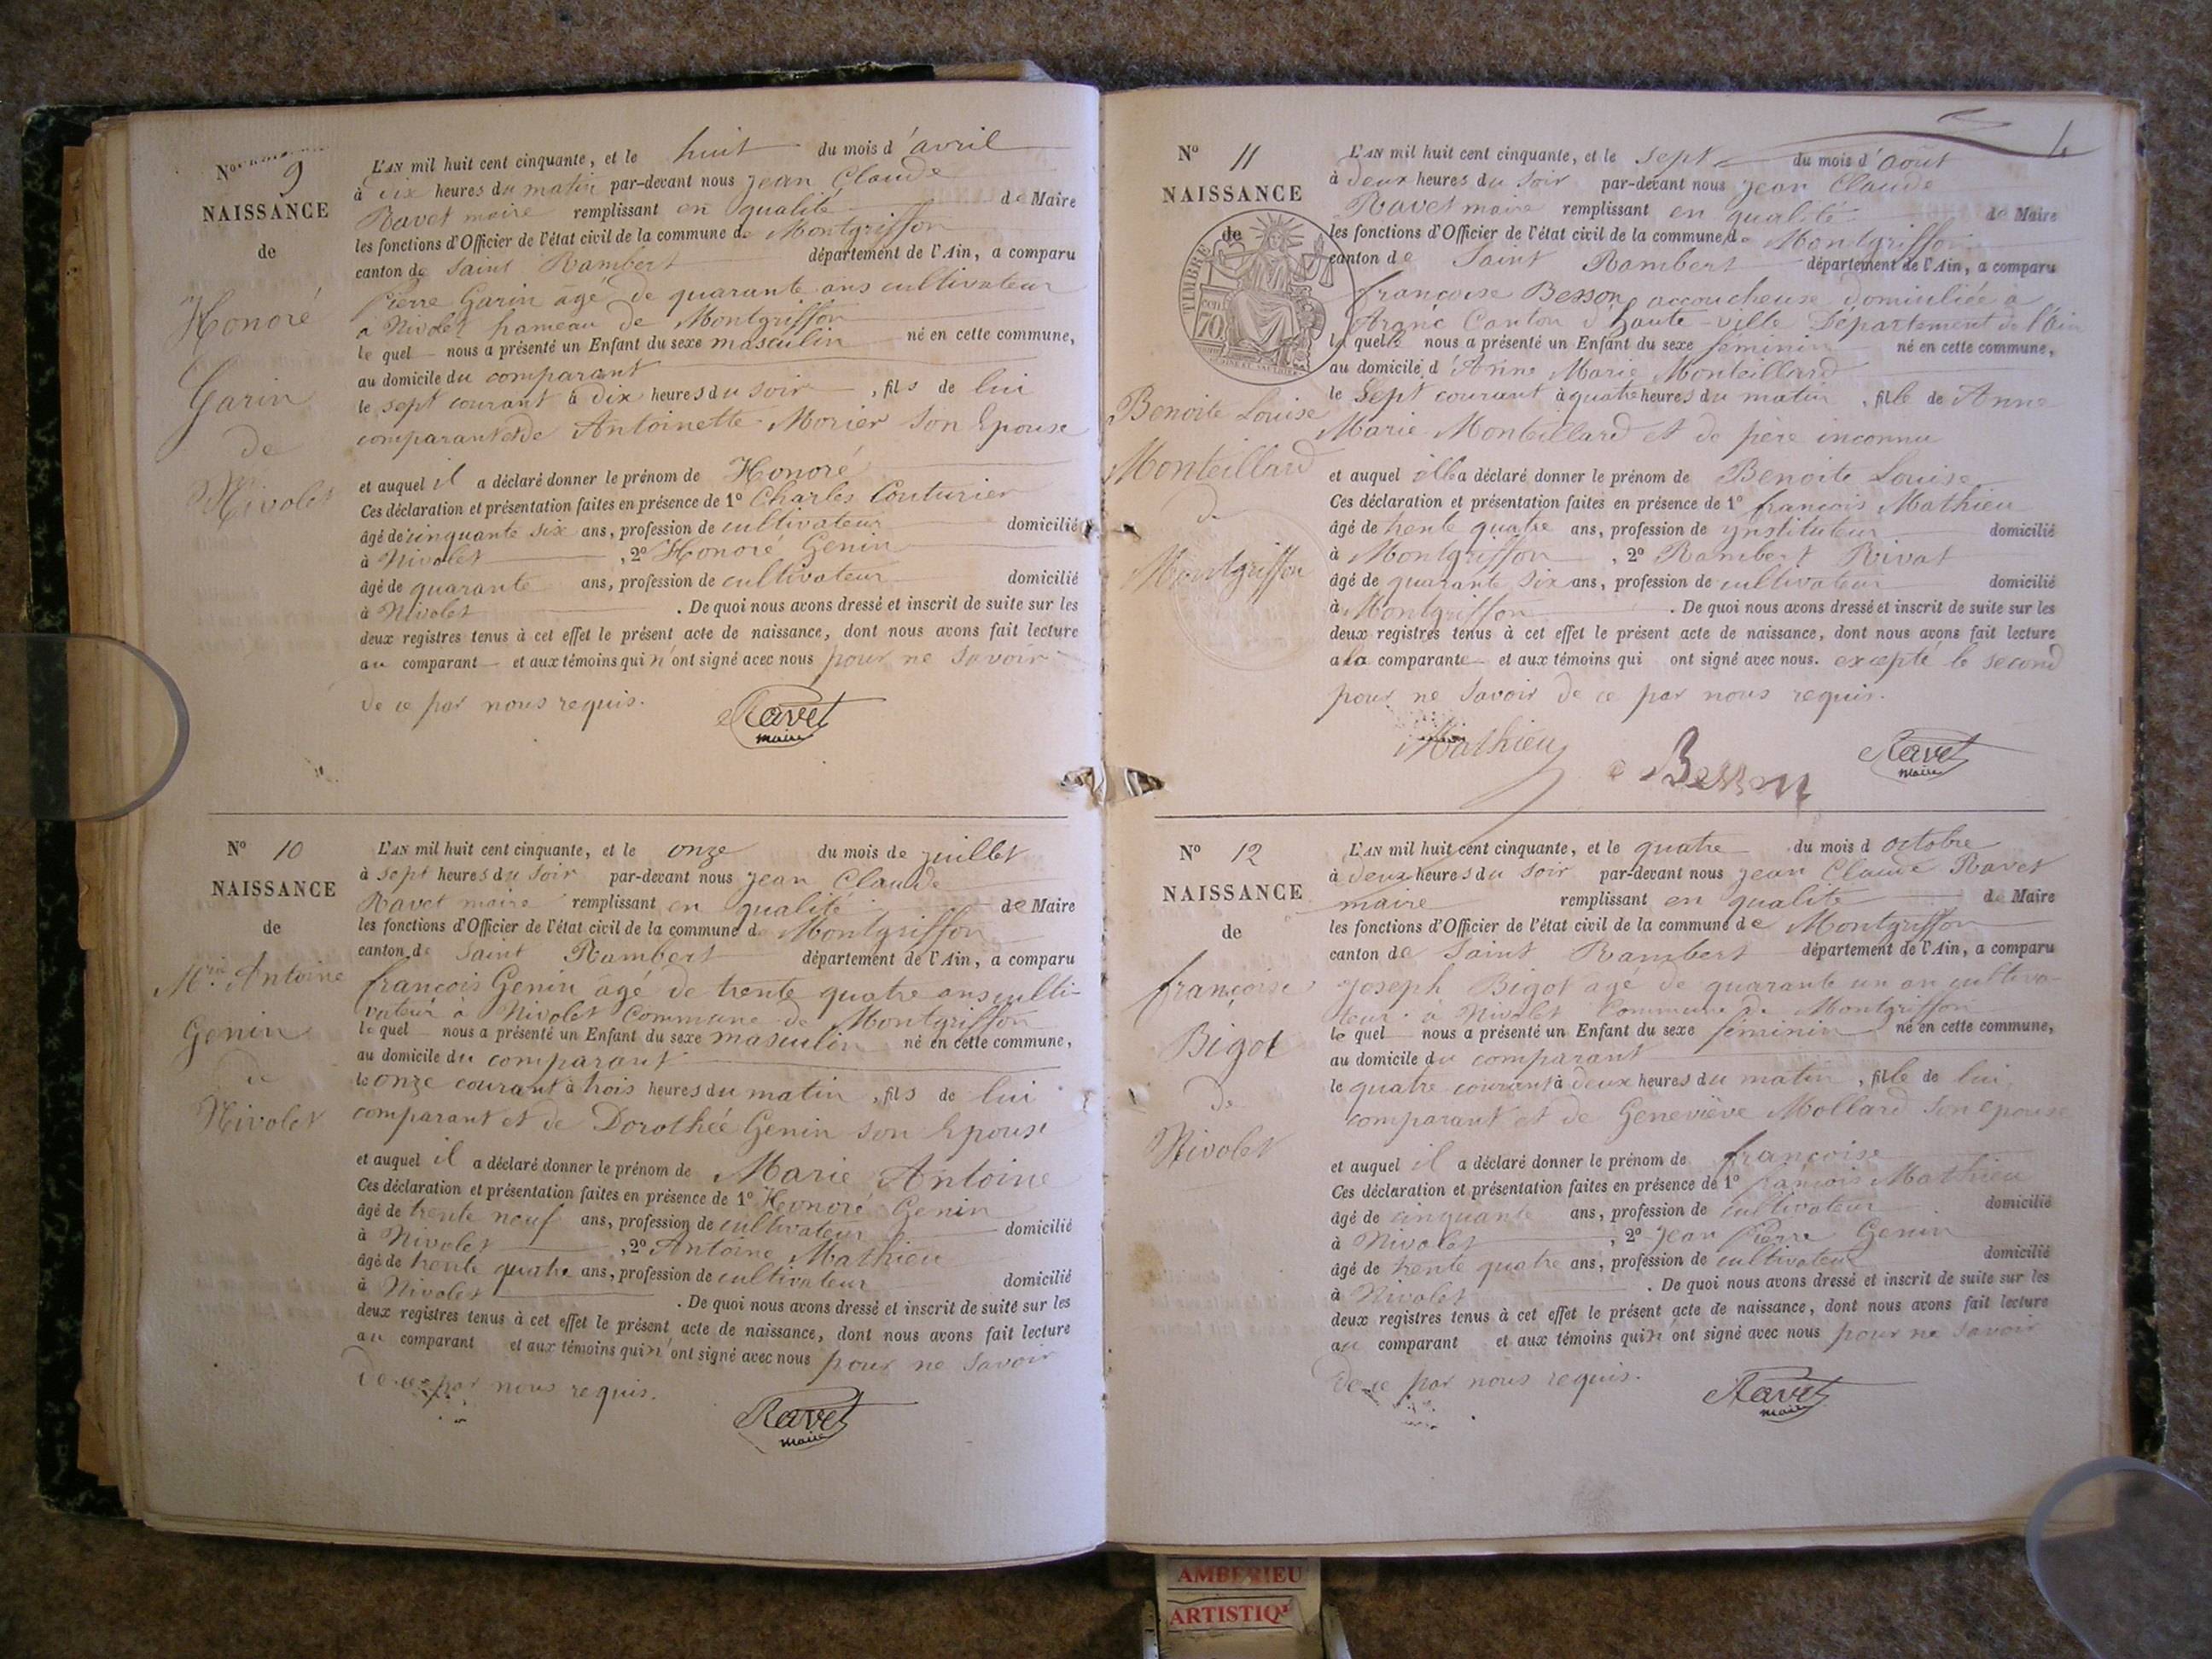 N° 9
NAISSANCE
de
Honoré
Garin
de
Nivolet
L'AN mil huit cent cinquante, et le huit du mois d'avril
à dix heures du matin par-devant nous Jean Claude
Ravet maire remplissant en qualité de Maire
les fonctions d'Officier de l'état civil de la commune de Montgriffon
canton de Saint Rambert département de l'Ain, a comparu
Pierre Garin âgé de quarante ans cultivateur
à Nivolet hameau de Montgriffon
le quel nous a présenté un Enfant du sexe masculin né en cette commune,
au domicile du comparant
le sept courant à dix heures du soir, fils de lui
comparant et de Antoinette Morier son Epouse
et auquel il a déclaré donner le prénom de Honoré
Ces déclaration et présentation faites en présence de 1° Charles Couturier
âgé de cinquante six ans, profession de cultivateur domicilié
à Nivolet, 2° Honoré Genin
âgé de quarante ans, profession de cultivateur domicilié
à Nivolet. De quoi nous avons dressé et inscrit de suite sur les
deux registres tenus à cet effet le présent acte de naissance, dont nous avons fait lecture
au comparant et aux témoins qui n'ont signé avec nous pour ne savoir
de ce par nous requis.
Ravet
maire
N° 10
NAISSANCE
de
Mrie Antoine
Genin
de
Nivolet
L'AN mil huit cent cinquante, et le onze du mois de juillet
à sept heures du soir par-devant nous Jean Claude
Ravet maire remplissant en qualité de Maire
les fonctions d'Officier de l'état civil de la commune d. Montgriffon
canton de Saint Rambert département de l'Ain, a comparu
françois Genin âgé de trente quatre ans culti-
vateur à Nivolet Commune de Montgriffon
le quel nous a présenté un Enfant du sexe masculin né en cette commune,
au domicile du comparant
le onze courant à trois heures du matin, fils de lui
comparant et de Dorothée Genin son Epouse
et auquel il a déclaré donner le prénom de Marie Antoine
Ces déclaration et présentation faites en présence de 1° Honoré Genin
âgé de trente neuf ans, profession de cultivateur domicilié
à Nivolet, 2° Antoine Mathieu
âgé de trente quatre ans, profession de cultivateur domicilié
à Nivolet. De quoi nous avons dressé et inscrit de suite sur les
deux registres tenus à cet effet le présent acte de naissance, dont nous avons fait lecture
au comparant et aux témoins qui n'ont signé avec nous pour ne savoir
de ce par nous requis.
Ravet
maire
N° 11
NAISSANCE
de
TIMBRE
70
Benoite Louise
Monteillard
de
Montgriffon
L'AN mil huit cent cinquante, et le sept du mois d'août
à deux heures du soir par-devant nous Jean Claude
Ravet maire remplissant en qualité de Maire
les fonctions d'Officier de l'état civil de la commune de Montgriffon
canton de Saint Rambert département de l'Ain, a comparu
françoise Besson, accoucheuse domiciliée à
Aranc Canton d'haute-ville Département de l'ain
la quelle nous a présenté un Enfant du sexe féminin né en cette commune,
au domicile d'Anne Marie Monteillard
le Sept courant à quatre heures du matin, fille de Anne
Marie Monteillard et de père inconnu
et auquel elle a déclaré donner le prénom de Benoite Louise
Ces déclaration et présentation faites en présence de 1° françois Mathieu
âgé de trente quatre ans, profession de ynstituteur domicilié
à Montgriffon, 2° Rambert Rivat
âgé de quarante six ans, profession de cultivateur domicilié
à Montgriffon. De quoi nous avons dressé et inscrit de suite sur les
deux registres tenus à cet effet le présent acte de naissance, dont nous avons fait lecture
a la comparante et aux témoins qui ont signé avec nous. excepté le second
pour ne savoir de ce par nous requis.
Mathieu Besson Ravet
maire
N° 12
NAISSANCE
de
françoise
Bigot
de
Nivolet
L'AN mil huit cent cinquante, et le quatre du mois d octobre
à deux heures du soir par-devant nous Jean Claude Ravet
maire remplissant en qualité de Maire
les fonctions d'Officier de l'état civil de la commune de Montgriffon
canton de Saint Rambert département de l'Ain, a comparu
Joseph Bigot agé de quarante un an cultiva-
teur à Nivolet Commune de Montgriffon
le quel nous a présenté un Enfant du sexe féminin né en cette commune,
au domicile du comparant
le quatre courant à deux heures du matin, fille de lui
comparant et de Geneviève Mollard son epouse
et auquel il a déclaré donner le prénom de françoise
Ces déclaration et présentation faites en présence de 1° françois Mathieu
âgé de cinquante ans, profession de cultivateur domicilié
à Nivolet, 2° Jean Pierre Genin
âgé de trente quatre ans, profession de cultivateur domicilié
à Nivolet. De quoi nous avons dressé et inscrit de suite sur les
deux registres tenus à cet effet le présent acte de naissance, dont nous avons fait lecture
au comparant et aux témoins qui n'ont signé avec nous pour ne savoir
de ce par nous requis.
Ravet
maire
AMBERIEU
ARTISTIQ